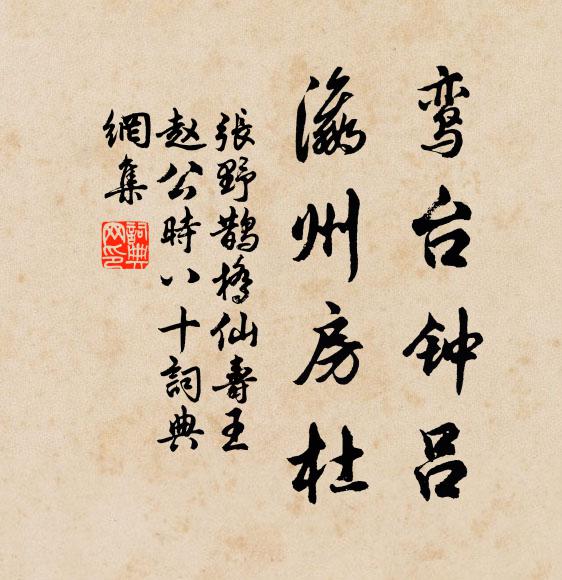 鸾台钟吕
瀛州房杜
張野鵲橋仙壽王
赵公時八十詞典
網集
詞典網印